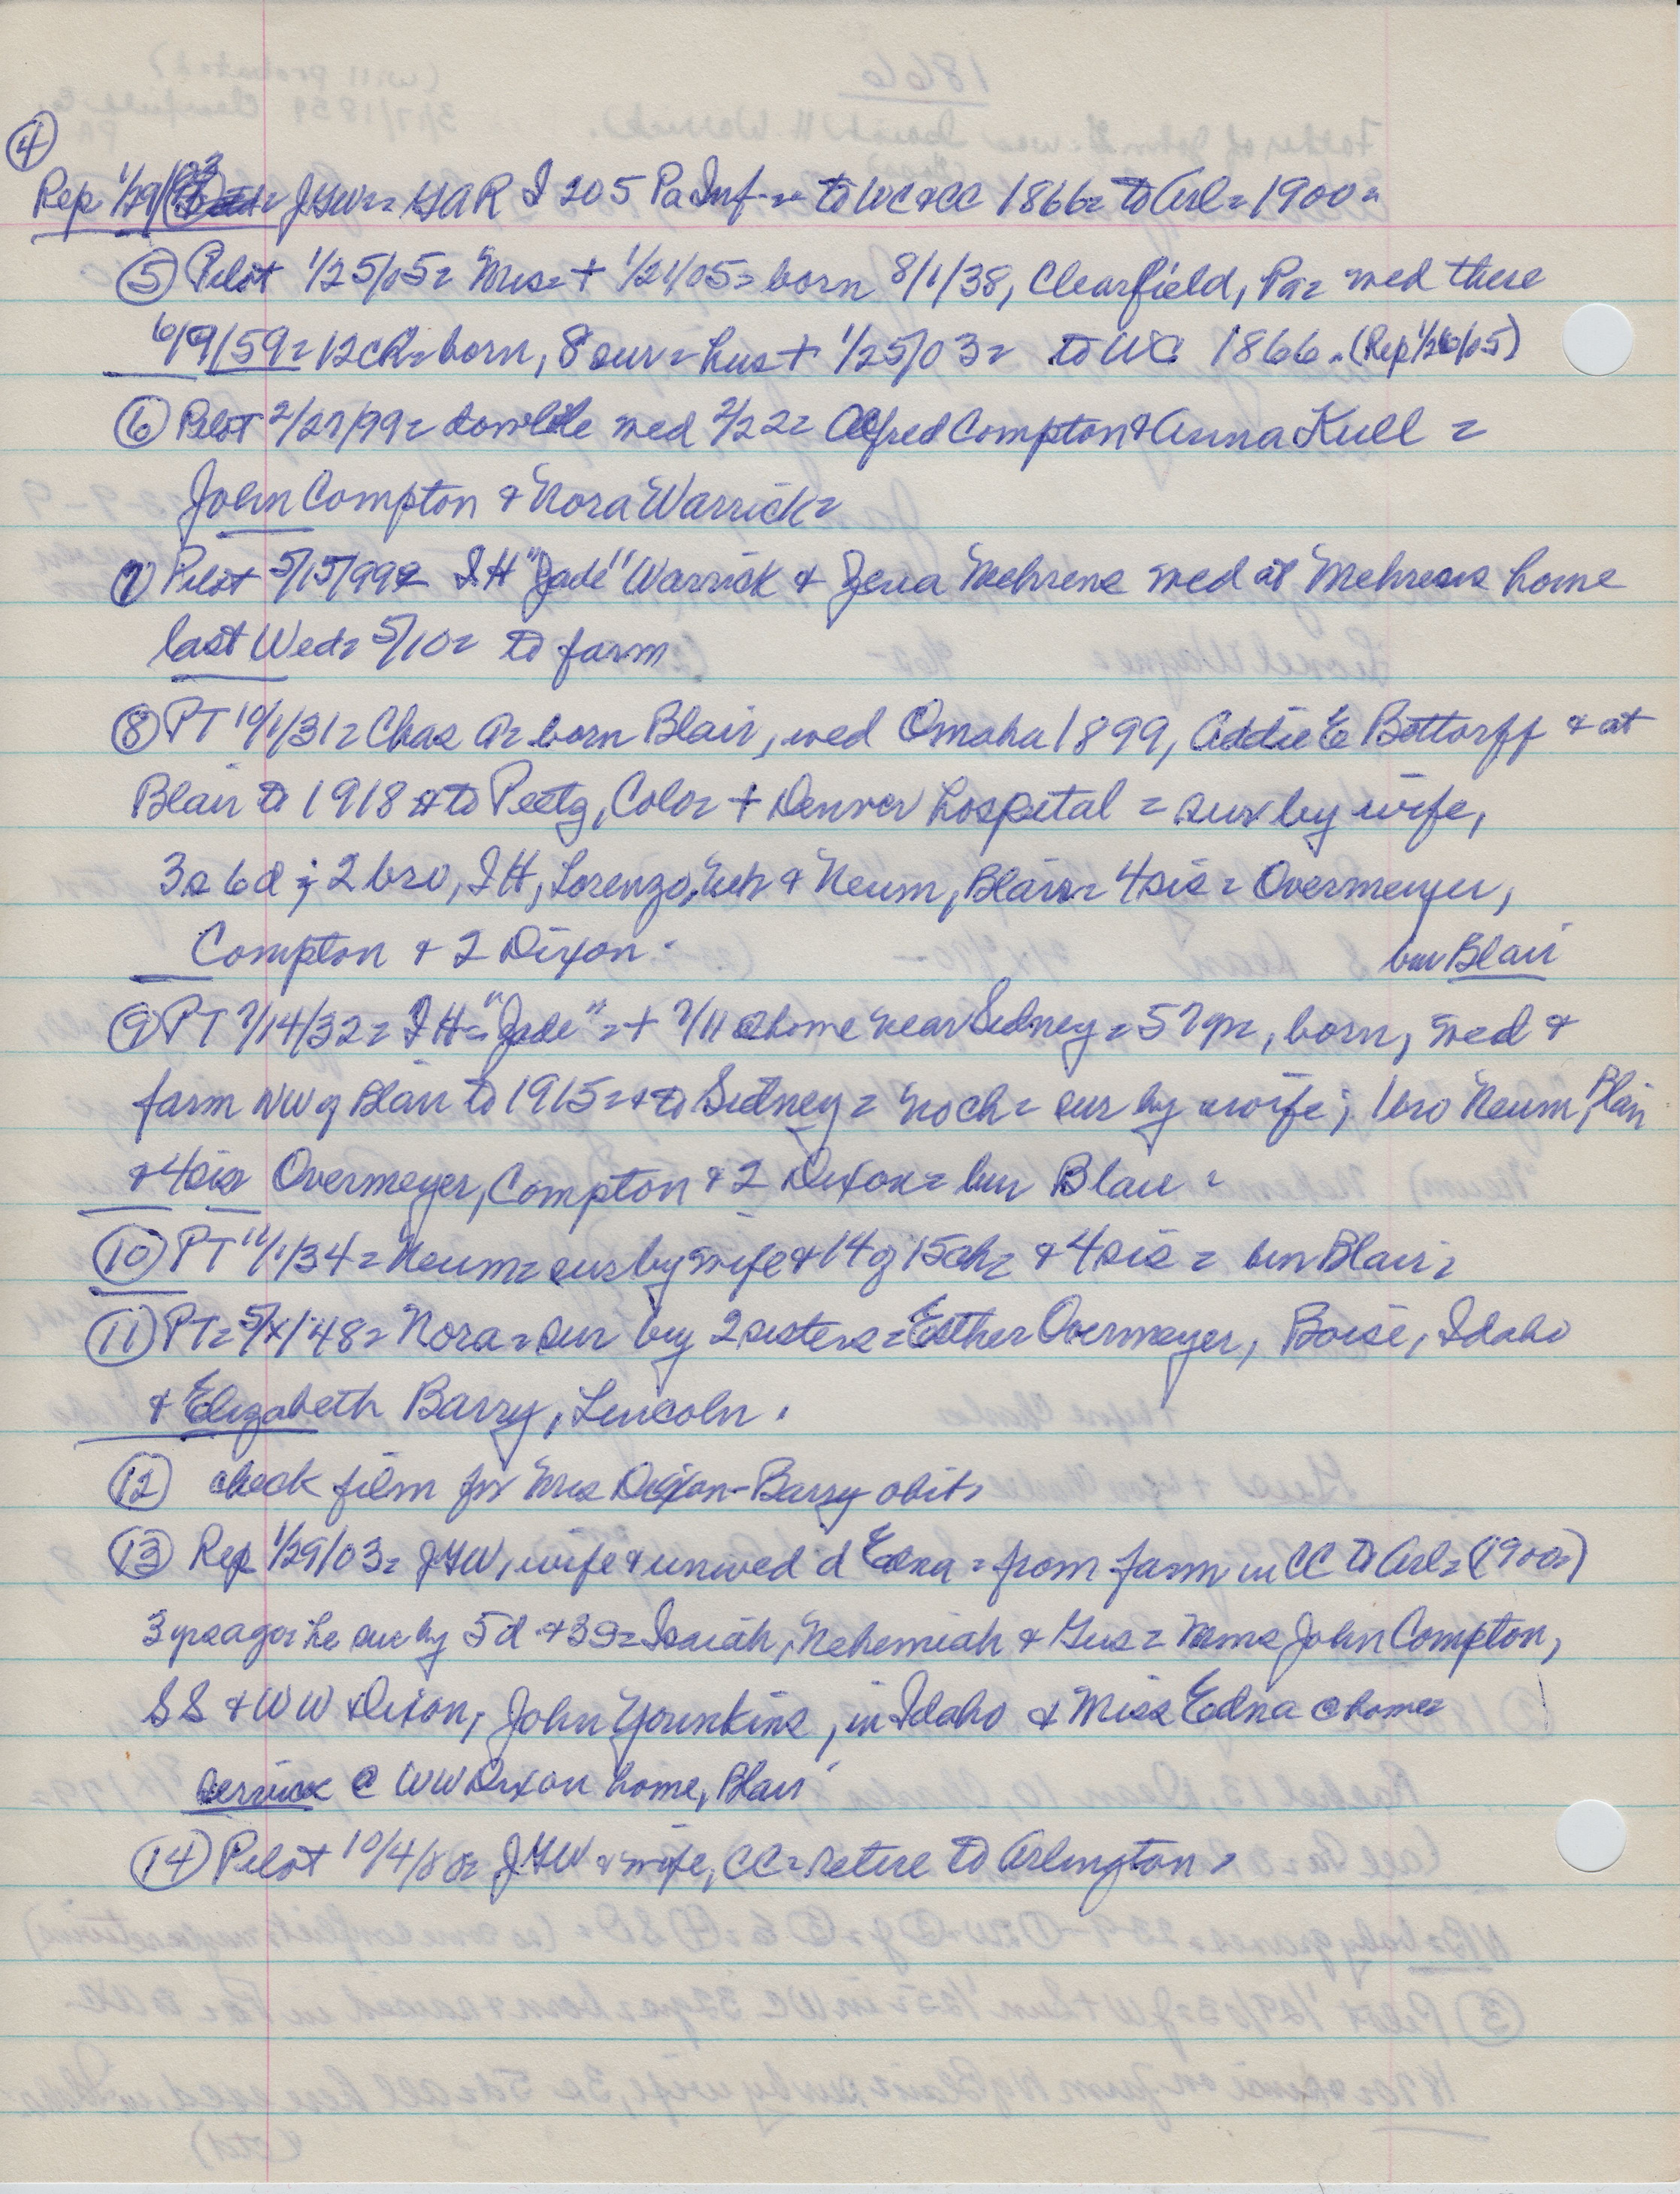 ④
Rep 1/29/03= JGW= GAR I 205 Pa Inf.= to WC & CC 1866= to Arl= 1900=
⑤ Pilot 1/25/05= Mrs= + 1/21/05= born 8/1/38, Clearfield, Pa= wed there
6/9/59= 12 ch= born, 8 sur= hus + 1/25/03= to WC 1866. (Rep 1/26/05)
⑥ Pilot 2/27/99= double wed 2/22= Alfred Compton & Anna Kull =
John Compton & Nora Warrick=
⑦ Pilot 5/15/99= I H "Jade" Warrick & Zena Mehrens wed at Mehrens home
last Wed= 5/10= to farm
⑧ PT 10/1/31= Chas A= born Blair, wed Omaha 1899, Addie E Bottorff & at
Blair to 1918 & to Peetz, Colo= + Denver hospital = sur by wife,
3s 6d ; 2 bro, I H, Lorenzo, Neb & Neum, Blair= 4 sis = Overmeyer,
Compton & 2 Dixon. bur Blair
⑨ PT 7/14/32= I H= "Jade"= + 7/11 @ home near Sidney= 57 yr=, born, wed &
farm NW of Blair to 1915= & to Sidney= no ch= sur by wife; 1 bro Neum, Blair
& 4 sis Overmeyer, Compton & 2 Dixon= bur Blair.
⑩ PT 11/1/34= Neum= sur by wife & 14 of 15 ch= & 4 sis = bur Blair=
⑪ PT= 5/x/48= Nora= sur by 2 sisters= Esther Overmeyer, Boise, Idaho
& Elizabeth Barry, Lincoln.
⑫ check film for Mrs Dixon-Barry obits
⑬ Rep 1/29/03= JGW, wife & unwed d Edna= from farm in CC to Arl= (1900=)
3 yrs ago= he sur by 5d & 3s= Isaiah, Nehemiah & Gus= Mmes John Compton,
SS & WW Dixon, John Younkins, in Idaho & Miss Edna @ home=
service @ WW Dixon home, Blair
⑭ Pilot 10/4/00= JGW & wife, CC= retire to Arlington=